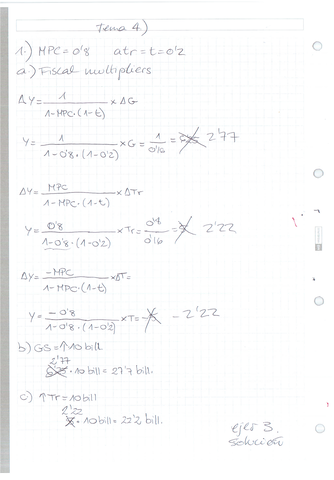 Tema 4)
1.) MPC = 0'8 atr = t = 0'2
a.) Fiscal multipliers
ΔY = 1 / 1-MPC·(1-t) × ΔG
Y = 1 / 1-0'8·(1-0'2) × G = 1 / 0'16 = 2'77
ΔY = MPC / 1-MPC·(1-t) × ΔTr
Y = 0'8 / 1-0'8·(1-0'2) × Tr = 0'8 / 0'16 = 2'22
ΔY = -MPC / 1-MPC·(1-t) × ΔT =
Y = -0'8 / 1-0'8·(1-0'2) × T = -2'22
b) GS = ↑10 bill
2'77 · 10 bill = 27'7 bill.
c) ↑Tr = 10 bill
2'22 · 10 bill = 22'2 bill.
ejer 3.
solución